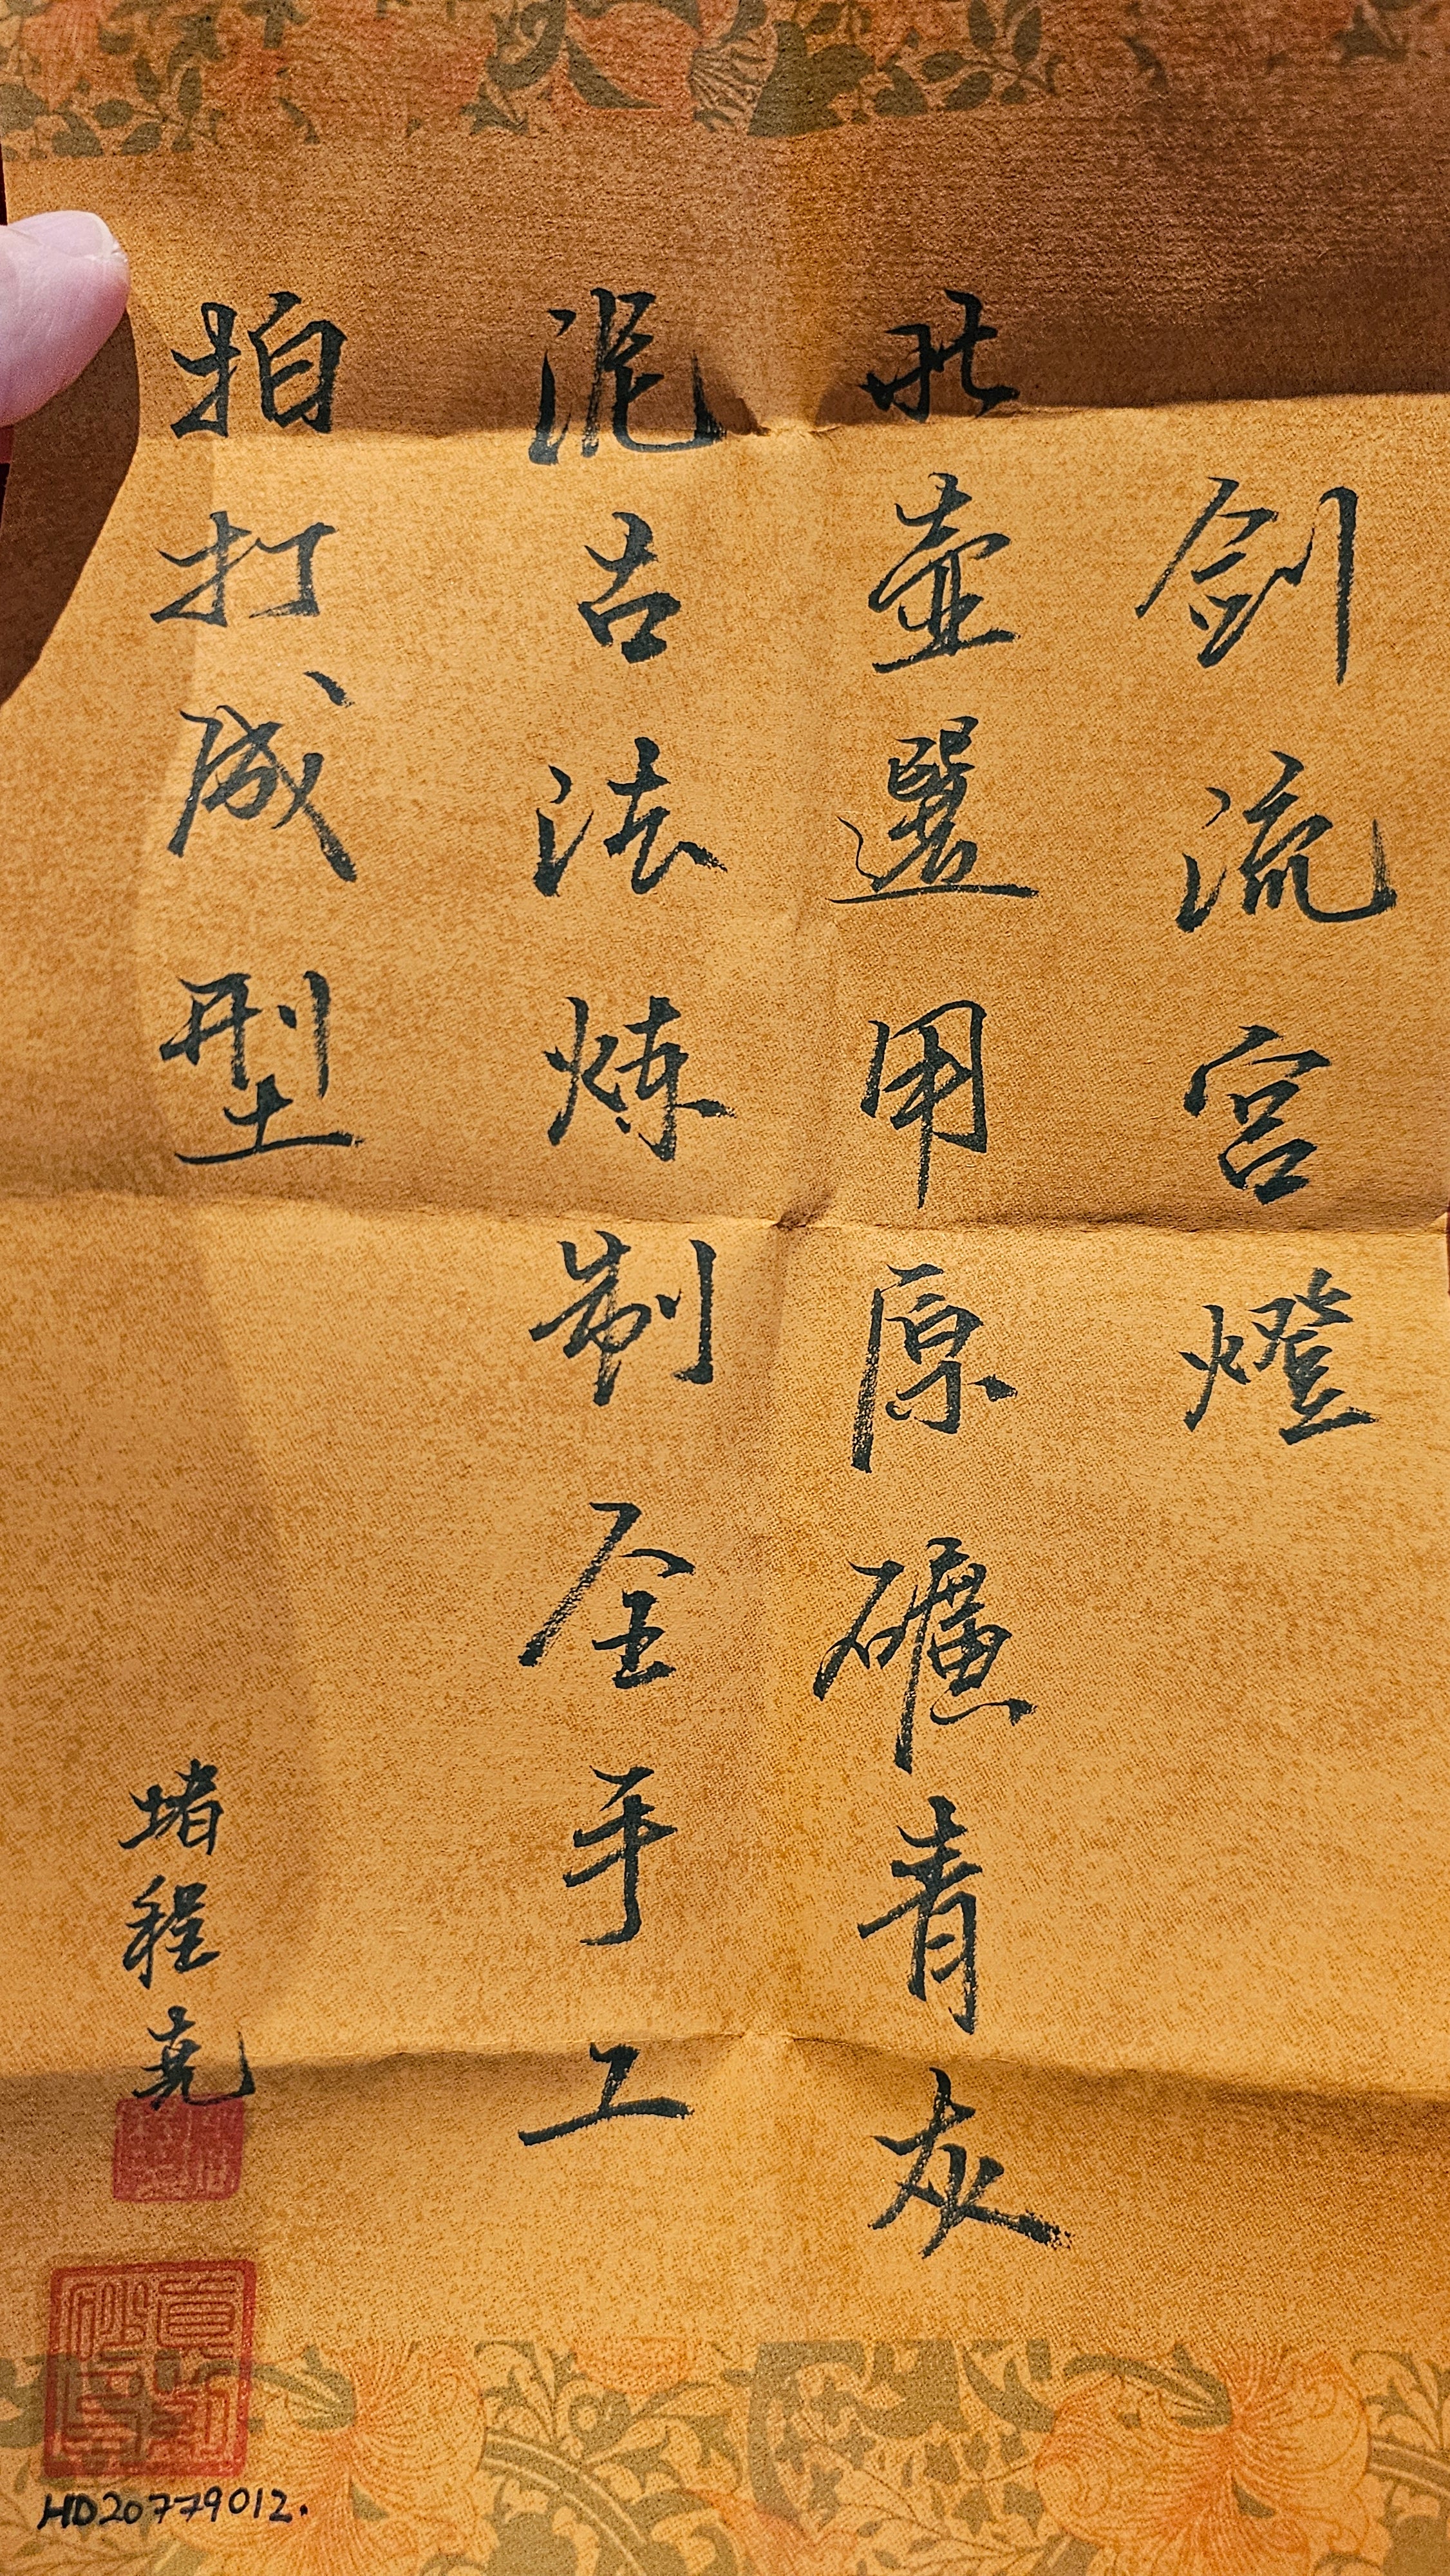 剑流宫燈
此壶選用原礦青灰
泥古法炼制全手工
拍打成型
堵程尧
HD20779012.